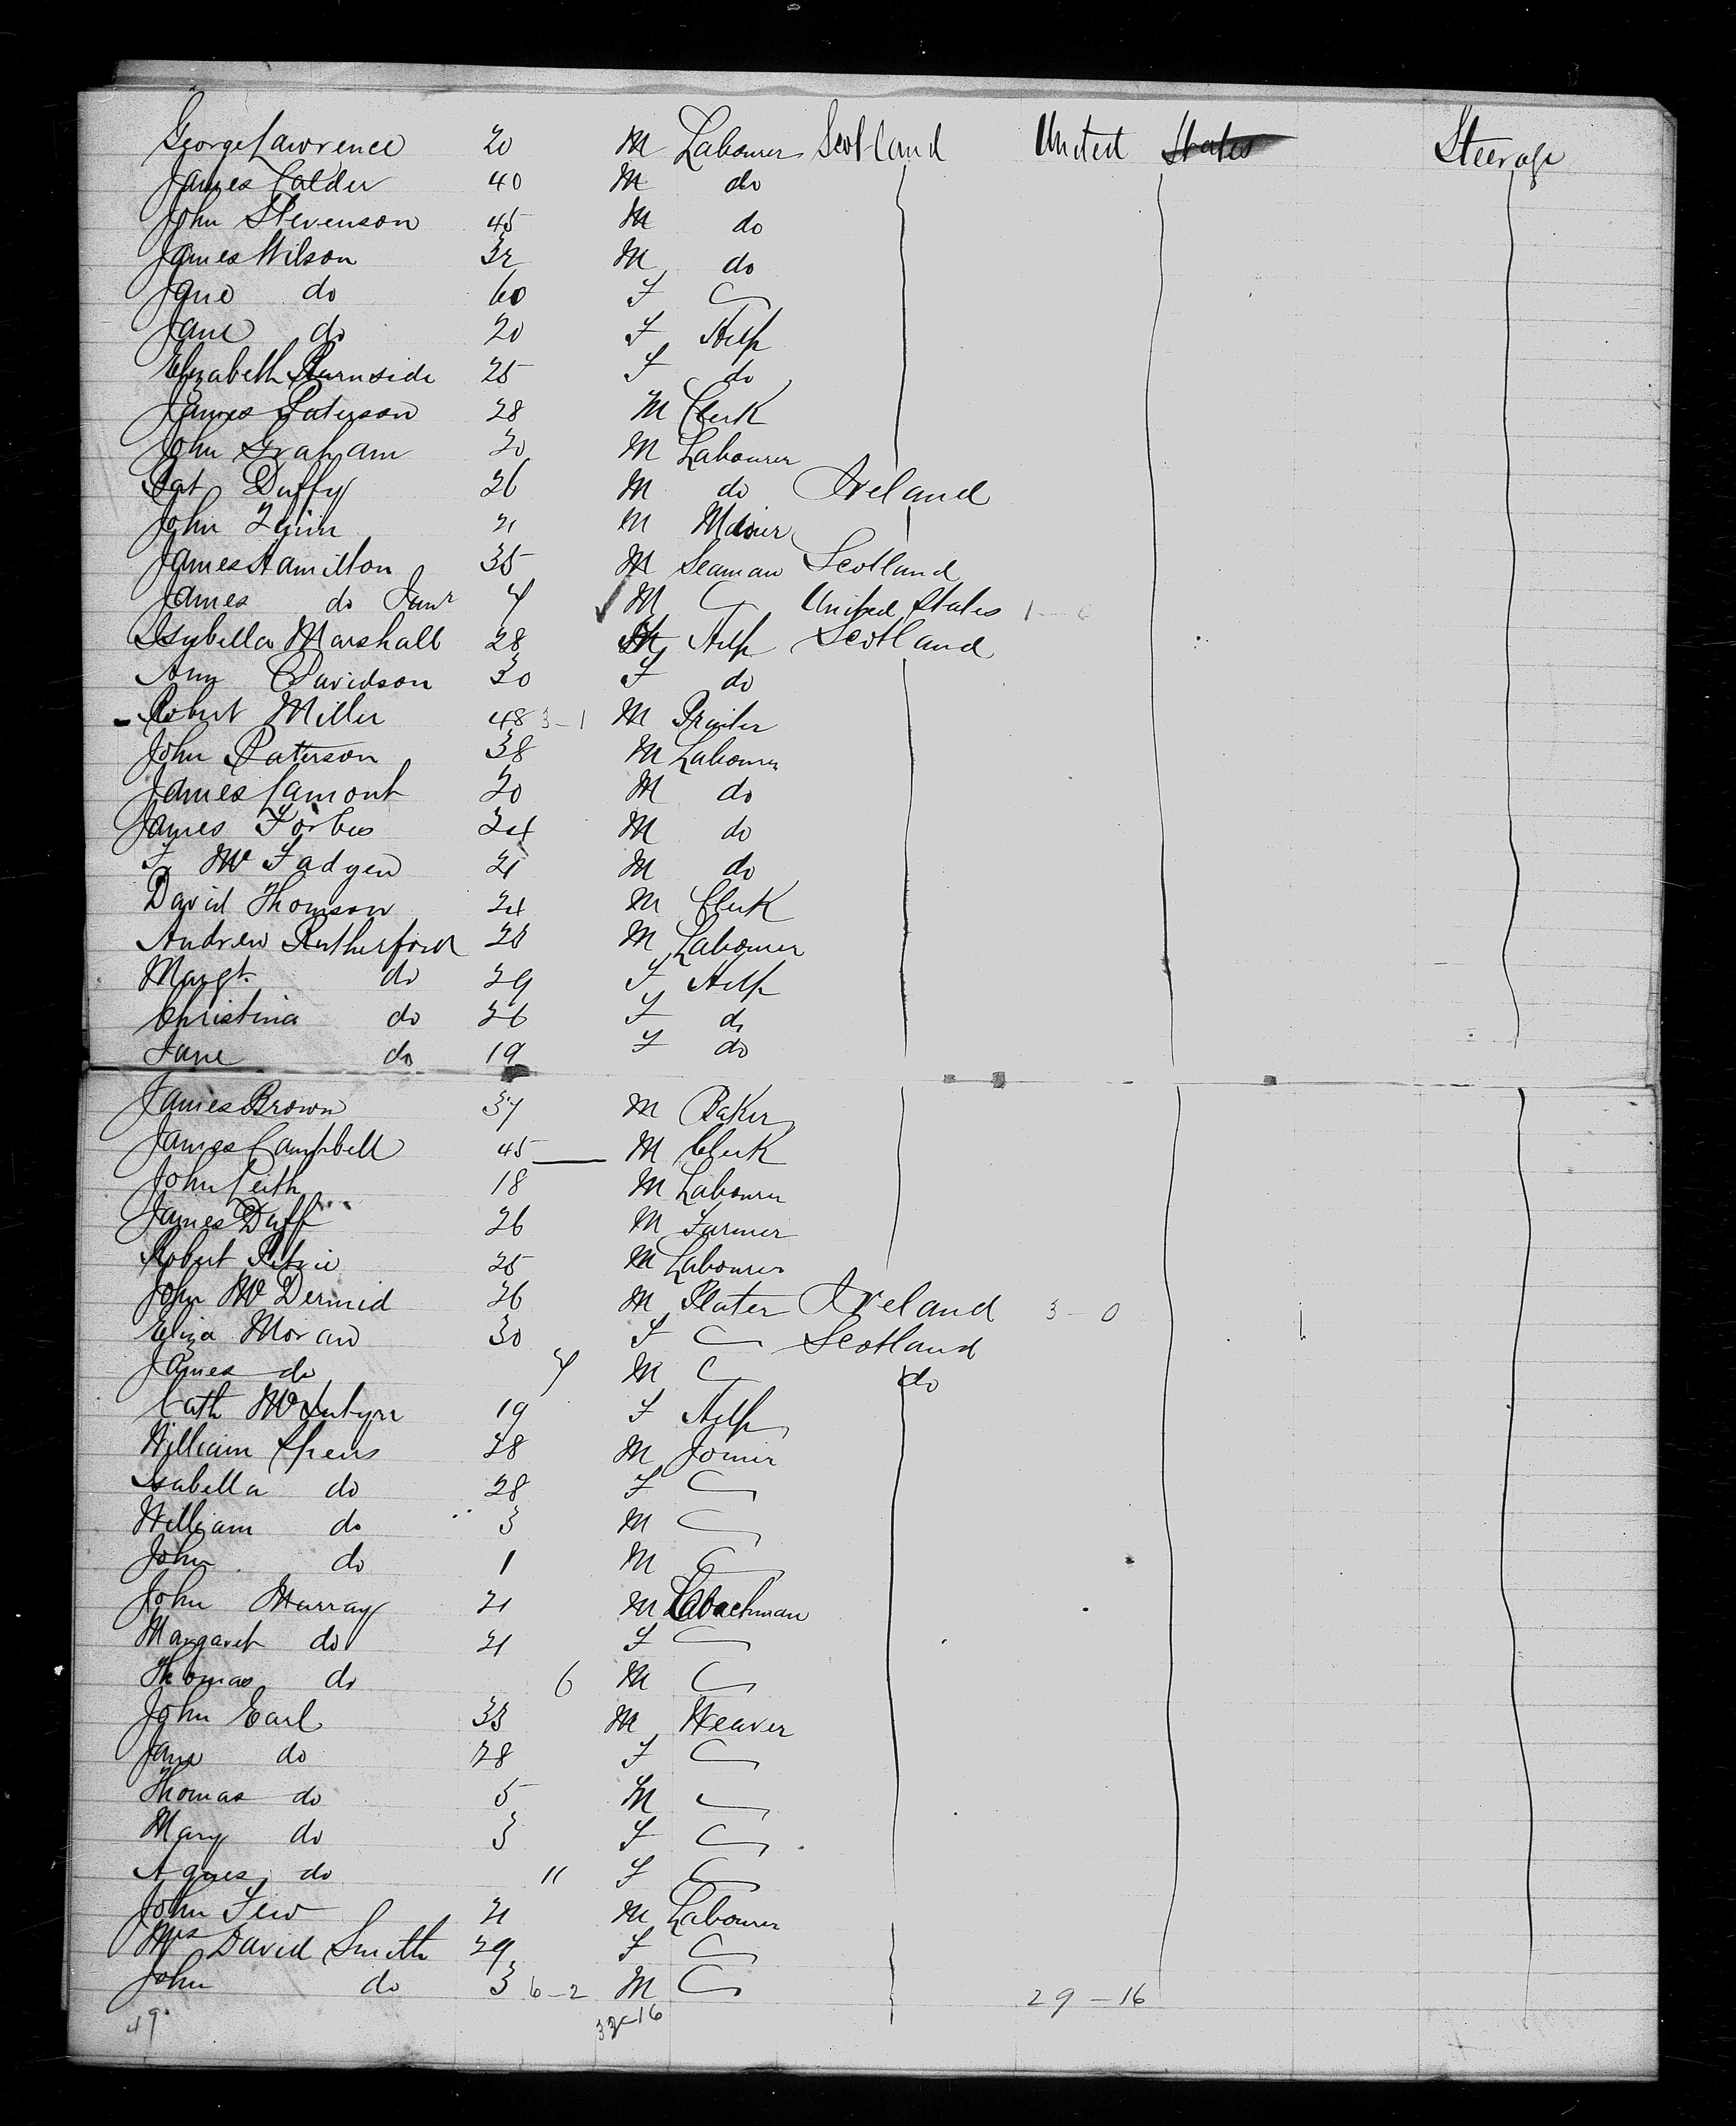 George Lawrence 20 M Labourer Scotland United States Steerage
James Calder 40 M do
John Stevenson 45 M do
James Wilson 32 M do
Jane do 60 F
Jane do 20 F Help
Elizabeth Burnside 25 F do
James Paterson 28 M Clerk
John Graham 20 M Labourer
Pat Duffy 26 M do Ireland
John 21 M
James Hamilton 35 M Seaman Scotland
James do Junr 4 M United States 1
Isybella Marshall 28 Help Scotland
Ann Davidson 30 F do
Robert Miller 48 3-1 M Printer
John Paterson 38 M Labourer
James Lamont 20 M do
James Forbes 24 M do
F McFadyen 21 M do
David Thomson 24 M Clerk
Andrew Rutherford 28 M Labourer
Margt. do 29 F Help
Christina do 26 F do
Jane do 19 F do
James Brown 37 M Baker
James Campbell 45 M Clerk
John Leith 18 M Labourer
James Duff 26 M Farmer
Robert 25 M Labourer
John McDermid 26 M Slater Ireland 3-0 1
Eliza Moran 30 F Scotland
James do M do
Cath McIntyre 19 F Help
William Speirs 28 M Joiner
Isabella do 28 F
William do 3 M
John do 1 M
John Murray 21 M
Margaret do 21 F
Thomas do 6 M
John Earl 33 M Weaver
Jane do 28 F
Thomas do 5 M
Mary do 3 F
Agnes do 11 F
John Few 21 M Labourer
Mrs David Smith 29 F
John do 3 6-2 M 29-16
49 16